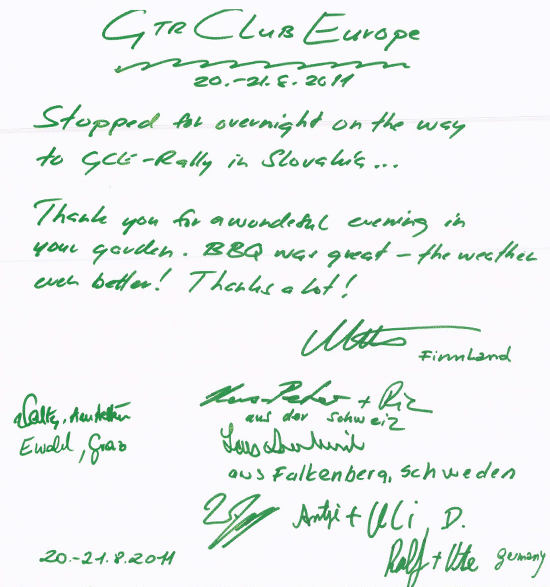 GTR Club Europe
20.-21.8.2011
Stopped for overnight on the way
to GCE-Rally in Slovakia...
Thank you for a wonderful evening in
your garden. BBQ was great - the weather
even better! Thanks a lot!
Finnland
Hans-Peter +
aus der Schweiz
Ewald, Graz
aus Falkenberg, Schweden
Antje + Uli D.
Ralf + Ute Germany
20.-21.8.2011